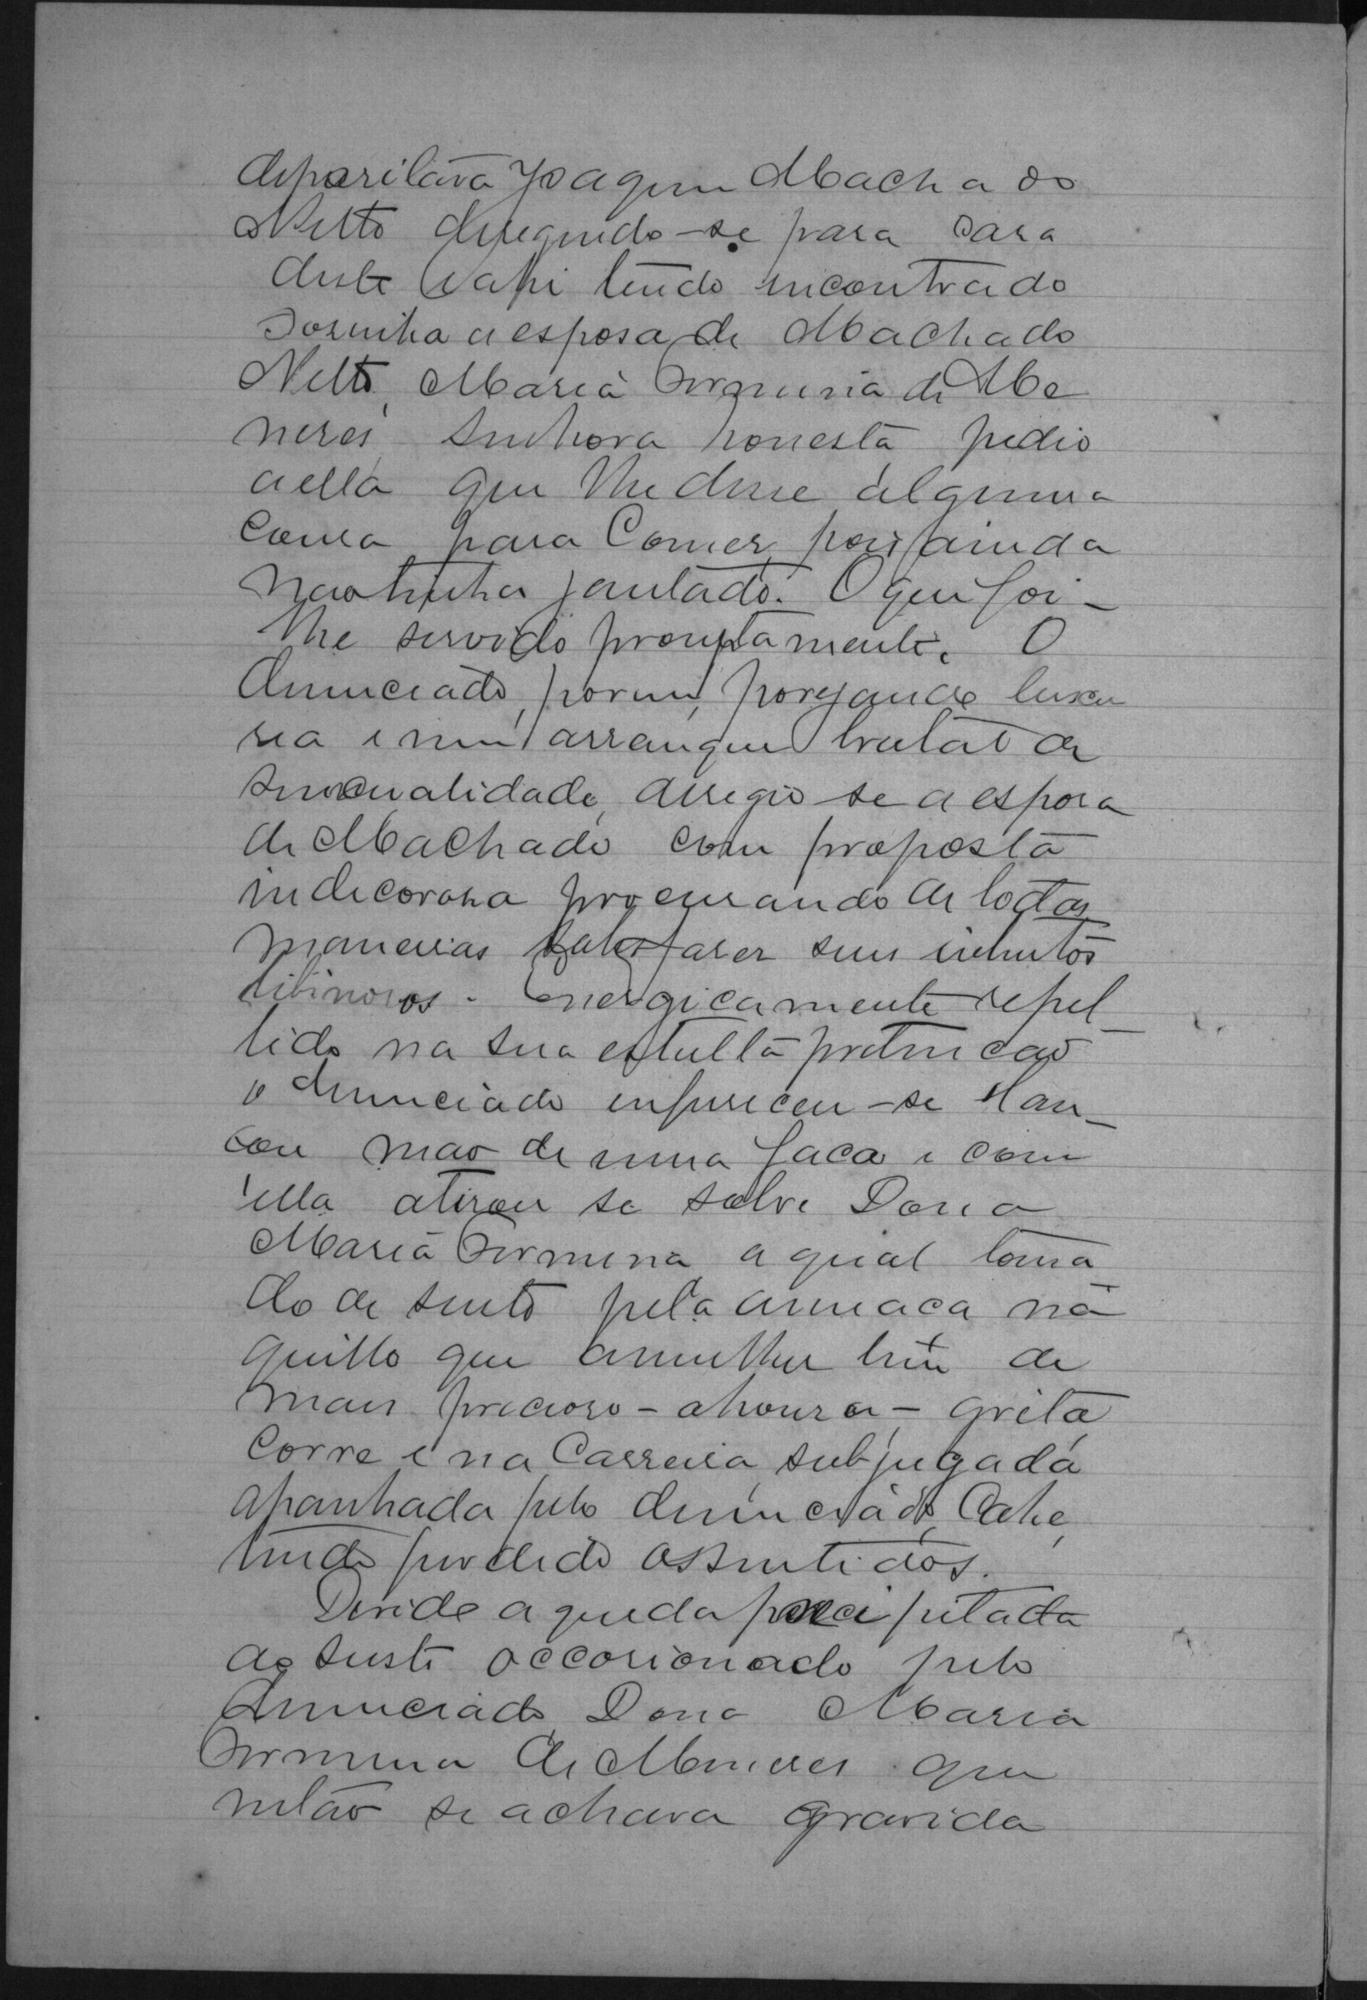 depositava Joaquim Machado
Netto dirigindo-se para casa
deste e ahi tendo encontrado
sosinha a esposa de Machado
Netto, Maria Firmina de Me
neses, senhora honesta pedio
a ella que lhe desse alguma
cousa para comer, pois ainda
nao tinha jantado. O que foi-
lhe servido promptamente. O
denunciado, porem, porejando luxu
ria e num arranque brutal de
sensualidade, dirigio-se a esposa
de Machado com proposta
indecorosa procurando de todas
maneiras satisfaser seus intuitos
libinosos. Energicamente repel-
lido na sua estulta pretencao
o denunciado enfureceu-se e lan-
cou mao de uma faca e com
ella atirou se sobre Dona
Maria Firmina a qual toma
do de susto pela ameaca na
quillo que a mulher tem de
mais precioso - a honra - grita,
corre e na carreira, subjugada,
apanhada pelo denunciado, cahe,
tendo perdido os sentidos.
Devido a queda precipitada
ao susto occosionado pelo
denunciado, Dona Maria
Firmina de Meneses que
então se achava gravida